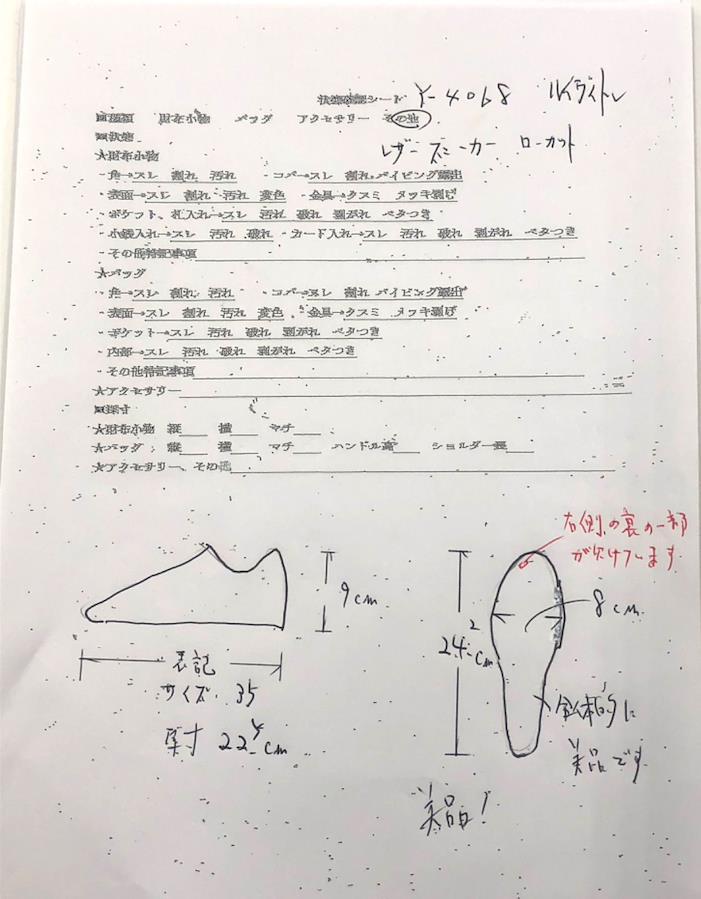 状態確認シート Y-4068 ルイヴィトン
■種類 財布小物 バッグ アクセサリー その他
レザースニーカー ローカット
■状態
★財布小物
・角→スレ 割れ 汚れ ・コバ→スレ 割れ パイピング露出
・表面→スレ 割れ 汚れ 変色 ・金具→クスミ メッキ剥げ
・ポケット、札入れ→スレ 汚れ 破れ 剥がれ ベタつき
・小銭入れ→スレ 汚れ 破れ ・カード入れ→スレ 汚れ 破れ 剥がれ ベタつき
・その他特記事項
★バッグ
・角→スレ 割れ 汚れ ・コバ→スレ 割れ パイピング露出
・表面→スレ 割れ 汚れ 変色 ・金具→クスミ メッキ剥げ
・ポケット→スレ 汚れ 破れ 剥がれ ベタつき
・内部→スレ 汚れ 破れ 剥がれ ベタつき
・その他特記事項
★アクセサリー
■採寸
★財布小物 縦 横 マチ
★バッグ 縦 横 マチ ハンドル高 ショルダー長
★アクセサリー、その他
右側の裏の一部
が欠けています
9cm
8cm
24.2cm
表記
サイズ 35
実寸 22.4cm
全体的に
美品です
美品!